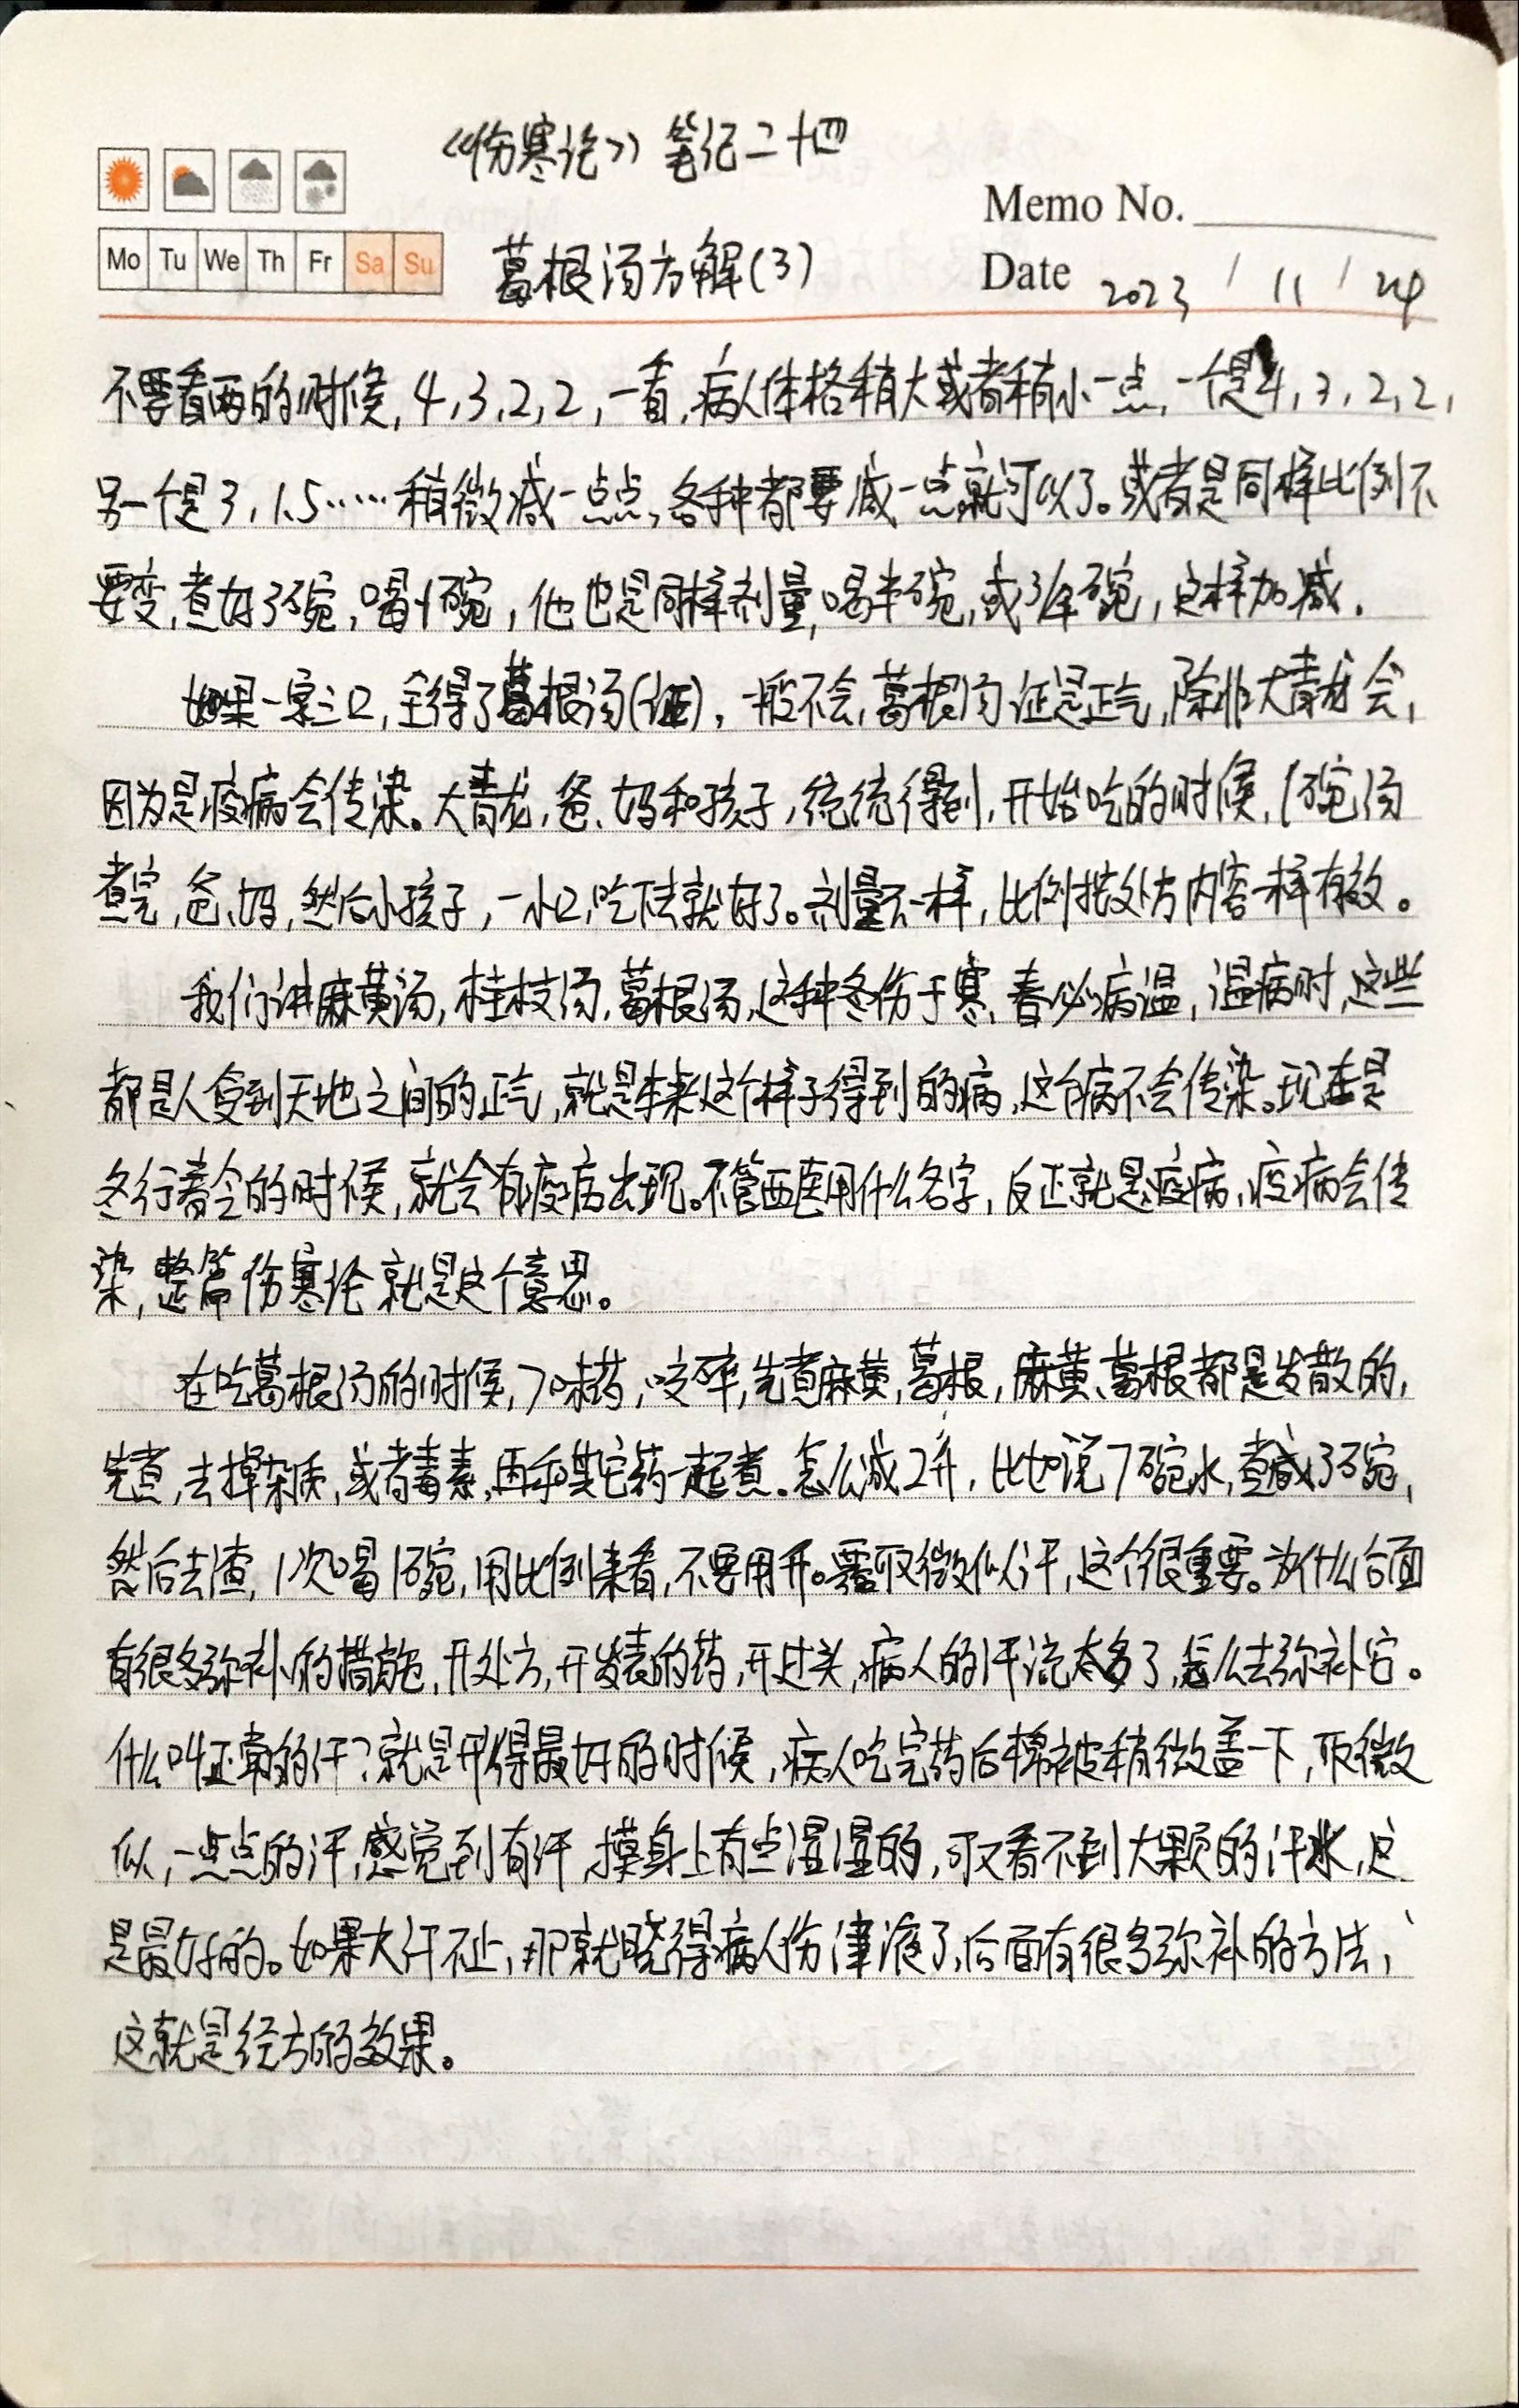 《伤寒论》笔记二十四
Memo No.
Mo Tu We Th Fr Sa Su
葛根汤方解(3)
Date 2023 / 11 / 24
不要看两的时候,4,3,2,2,一看,病人体格稍大或者稍小一点,一个是4,3,2,2,
另一个是3,1.5……稍微减一点点,各种都要减一点就可以了。或者是同样比例不
要变,煮好3碗,喝1碗,他也是同样剂量,喝半碗,或1/3碗,这样加减.
如果一家三口,全得了葛根汤(证),一般不会,葛根汤证是正气,除非大青龙会,
因为是疫病会传染。大青龙,爸、妈和孩子,统统得到,开始吃的时候,1碗汤
煮完,爸、妈,然后小孩子,一小口,吃下去就好了。剂量不一样,比例按处方内容一样有效。
我们讲麻黄汤,桂枝汤,葛根汤,这种冬伤于寒、春必病温,温病时,这些
都是人受到天地之间的正气,就是本来这个样子得到的病,这个病不会传染。现在是
冬行春令的时候,就会有疫病出现。不管西医用什么名字,反正就是疫病,疫病会传
染,整篇伤寒论就是这个意思。
在吃葛根汤的时候,7味药,㕮碎,先煮麻黄,葛根,麻黄、葛根都是发散的,
先煮,去掉杂质,或者毒素,再和其它药一起煮。怎么减2升,比如说7碗水,煮减3碗,
然后去渣,1次喝1碗,用比例来看,不要用升。覆取微似汗,这个很重要。为什么后面
有很多弥补的措施,开处方,开发表的药,开过头,病人的汗流太多了,怎么去弥补它。
什么叫正常的汗?就是开得最好的时候,病人吃完药后棉被稍微盖一下,取微
似,一点点的汗,感觉到有汗,摸身上有点湿湿的,可又看不到大颗的汗水,这
是最好的。如果大汗不止,那就晓得病人伤津液了,后面有很多弥补的方法,
这就是经方的效果。